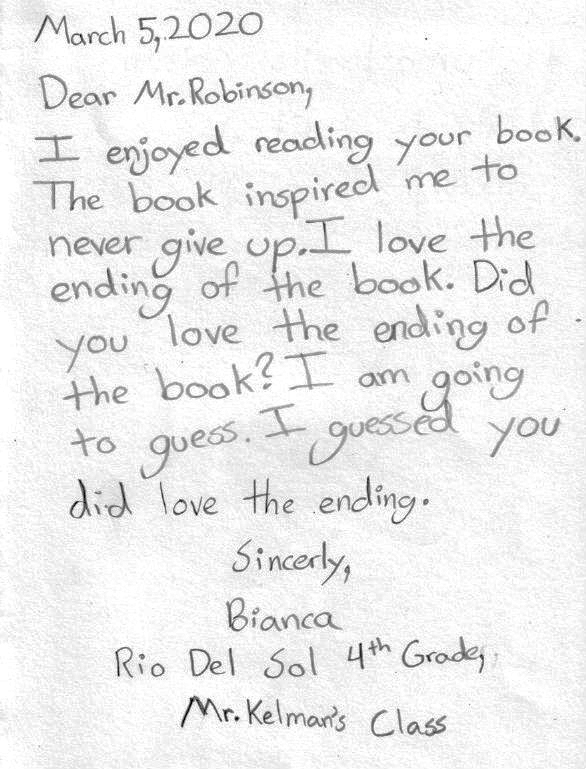 March 5, 2020
Dear Mr. Robinson,
I enjoyed reading your book.
The book inspired me to
never give up. I love the
ending of the book. Did
you love the ending of
the book? I am going
to guess. I guessed you
did love the ending.
Sincerly,
Bianca
Rio Del Sol 4th Grade,
Mr. Kelman's Class